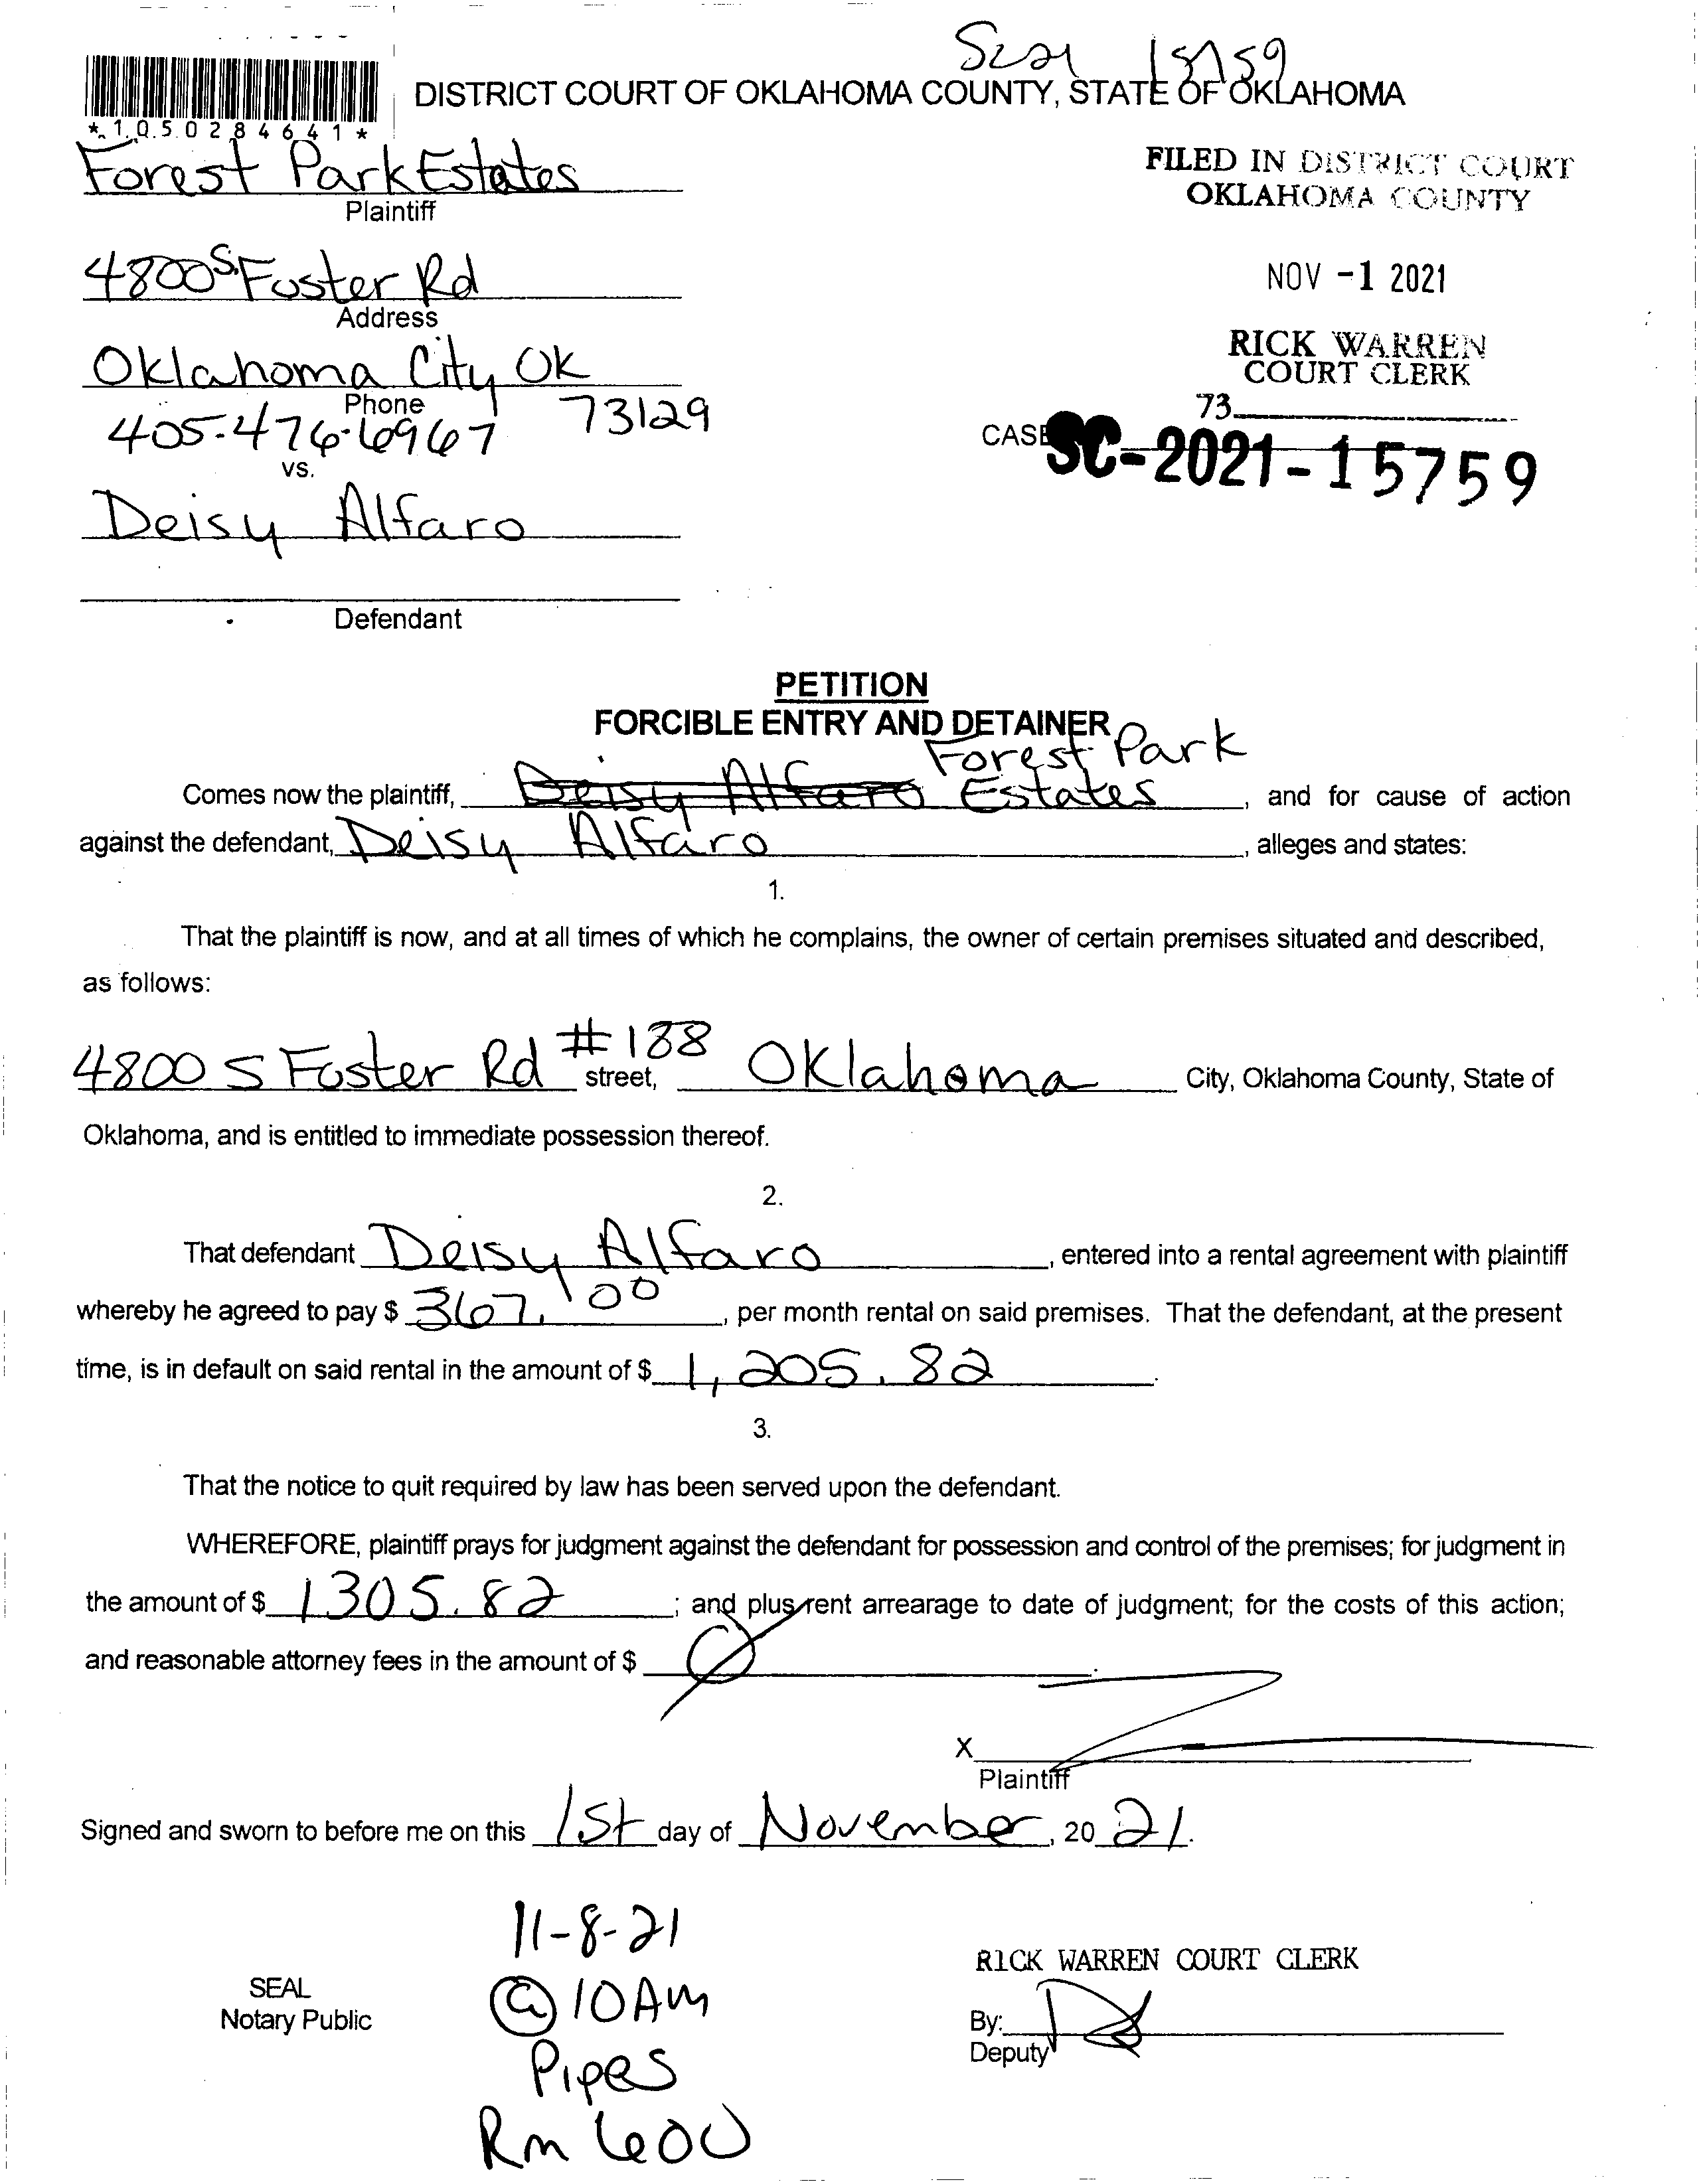 SC21 15759
DISTRICT COURT OF OKLAHOMA COUNTY, STATE OF OKLAHOMA
*1050284641*
Forest Park Estates
Plaintiff
FILED IN DISTRICT COURT
OKLAHOMA COUNTY
4800 S. Foster Rd
Address
NOV -1 2021
Oklahoma City OK
73129
Phone
405-476-6967
RICK WARREN
COURT CLERK
73
CASE
SC-2021-15759
vs.
Deisy Alfaro
Defendant
PETITION
FORCIBLE ENTRY AND DETAINER
Forest Park
Comes now the plaintiff, Deisy Alfaro Estates, and for cause of action
against the defendant, Deisy Alfaro, alleges and states:
1.
That the plaintiff is now, and at all times of which he complains, the owner of certain premises situated and described,
as follows:
4800 S Foster Rd #188 street, Oklahoma City, Oklahoma County, State of
Oklahoma, and is entitled to immediate possession thereof.
2.
That defendant Deisy Alfaro, entered into a rental agreement with plaintiff
whereby he agreed to pay $ 367.00, per month rental on said premises. That the defendant, at the present
time, is in default on said rental in the amount of $ 1,205.82.
3.
That the notice to quit required by law has been served upon the defendant.
WHEREFORE, plaintiff prays for judgment against the defendant for possession and control of the premises; for judgment in
the amount of $ 1305.82; and plus rent arrearage to date of judgment; for the costs of this action;
and reasonable attorney fees in the amount of $ Ø.
X
Plaintiff
Signed and sworn to before me on this 1st day of November, 20 21.
11-8-21
@ 10AM
Pipes
Rm 600
SEAL
Notary Public
RICK WARREN COURT CLERK
By:
Deputy